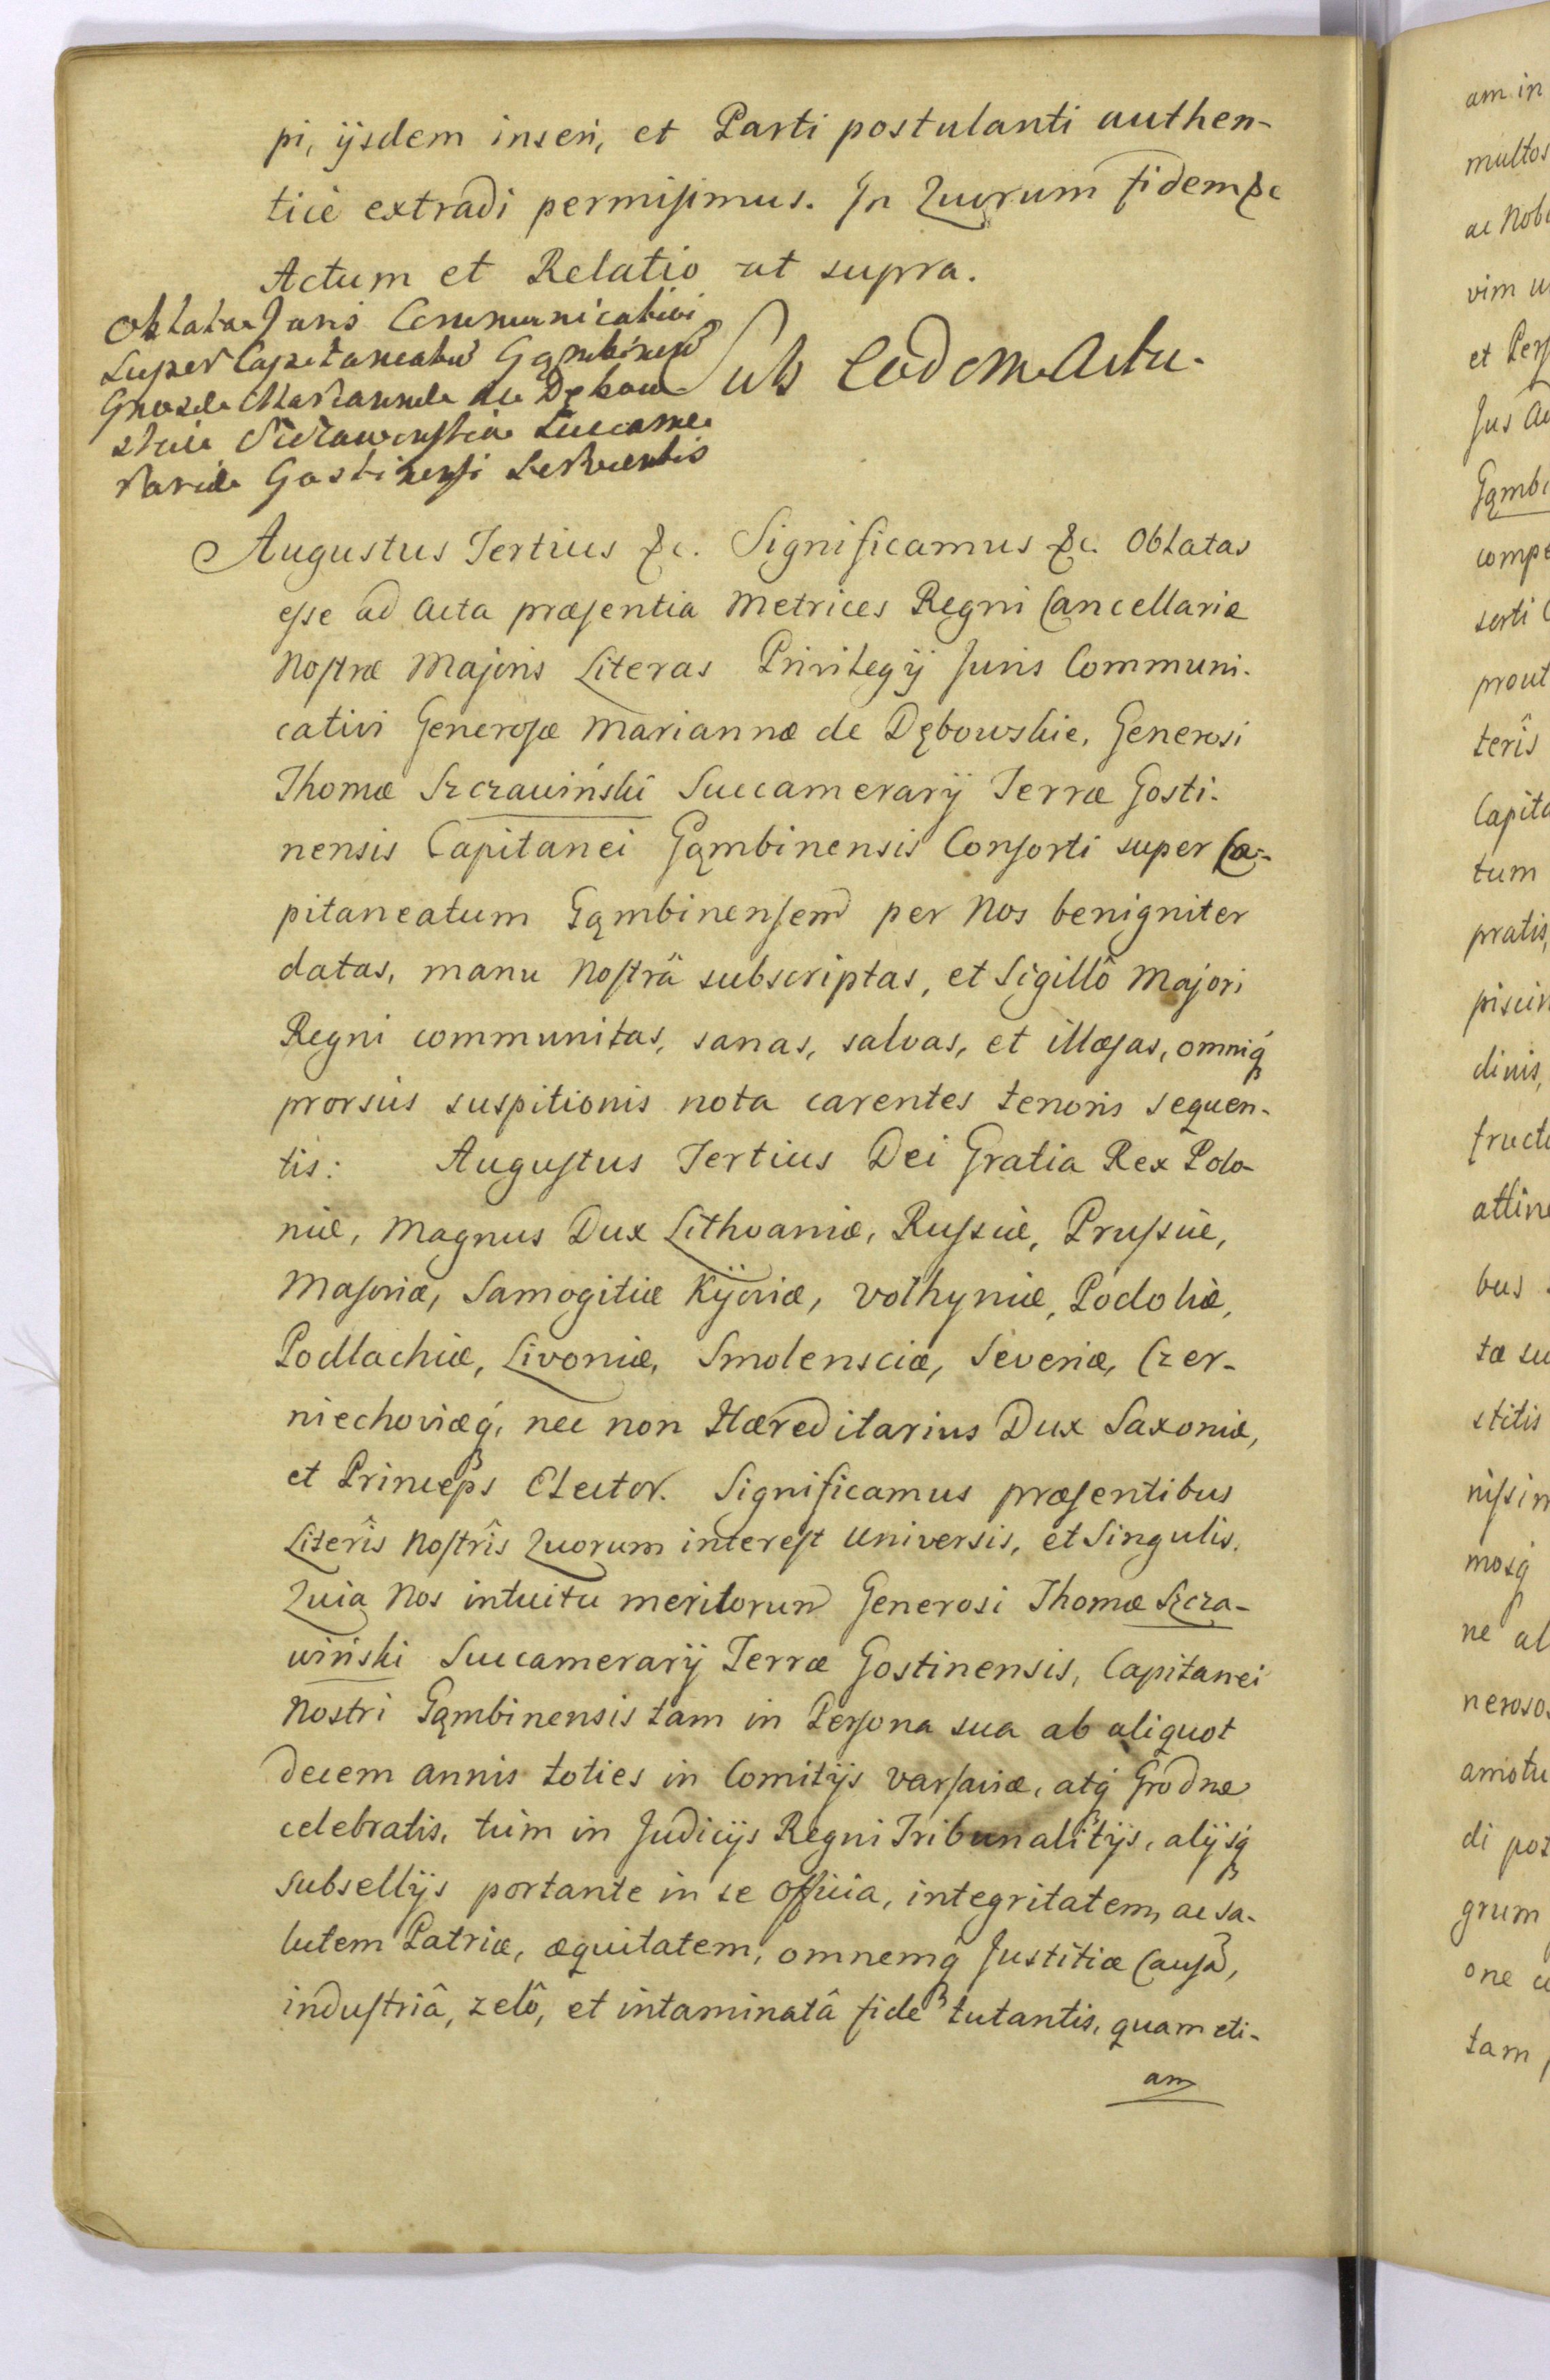 pi, ijsdem inseri, et Parti postulanti authen-
ticè extradi permisimus. In Quorum fidem &c
Actum et Relatio ut supra.
Oblata Juris Communicativi
super Capitaneatū Gąmbinensē
Gnosæ Mariannæ de Dębow
skie Szczawinskia Succame
rariæ Gostinensi servientis
Sub Eodem Actu.
Augustus Tertius &c. Significamus &c. Oblatas
esse ad Acta præsentia Metrices Regni Cancellariæ
Nostræ Majoris Literas Privilegij Juris Communi-
cativi Generosæ Mariannæ de Dębowskie, Generosi
Thomæ Szczawiński Succamerarij Terræ Gosti-
nensis Capitanei Gąmbinensis Consorti super Ca-
pitaneatum Gąmbinensem per Nos benigniter
datas, manu Nostrâ subscriptas, et Sigillô Majori
Regni communitas, sanas, salvas, et illæsas, omniq́
prorsus suspitionis nota carentes tenoris sequen-
tis: Augustus Tertius Dei Gratia Rex Polo-
niæ, Magnus Dux Lithvaniæ, Russiæ, Prussiæ,
Masoviæ, Samogitiæ Kijoviæ, Volhyniæ, Podoliæ,
Podlachiæ, Livoniæ, Smolensciæ, Severiæ, Czer-
niechoviæq́, nec non Hæreditarius Dux Saxoniæ,
et Princeps Elector. Significamus præsentibus
Literîs Nostrîs Quorum interest Universis, et Singulis.
Quia Nos intuitu meritorum Generosi Thomæ Szcza-
wiński Succamerarij Terræ Gostinensis, Capitanei
Nostri Gąmbinensis tam in Persona sua ab aliquot
decem annis toties in Comitijs Varsaviæ, atq́ Grodnæ
celebratis, tùm in Judicijs Regni Tribunalitijs, alijsq́
subsellijs portante in se Officia, integritatem, ac sa-
lutem Patriæ, æquitatem, omnemq́ Justitiæ Causā,
industriâ, zelô, et intaminatâ fide tutantis, quam eti-
am
am in
multos
ac Nob
vim u
et Pers
Jus
Gąmbi
compe
serti
prout
terîs
Capita
tum
pratis,
piscin
dinis,
fructi
attine
bus
tæ su
stitis
nissim
mosq́
ne al
neroso
amotu
di pos
grum
one
tam